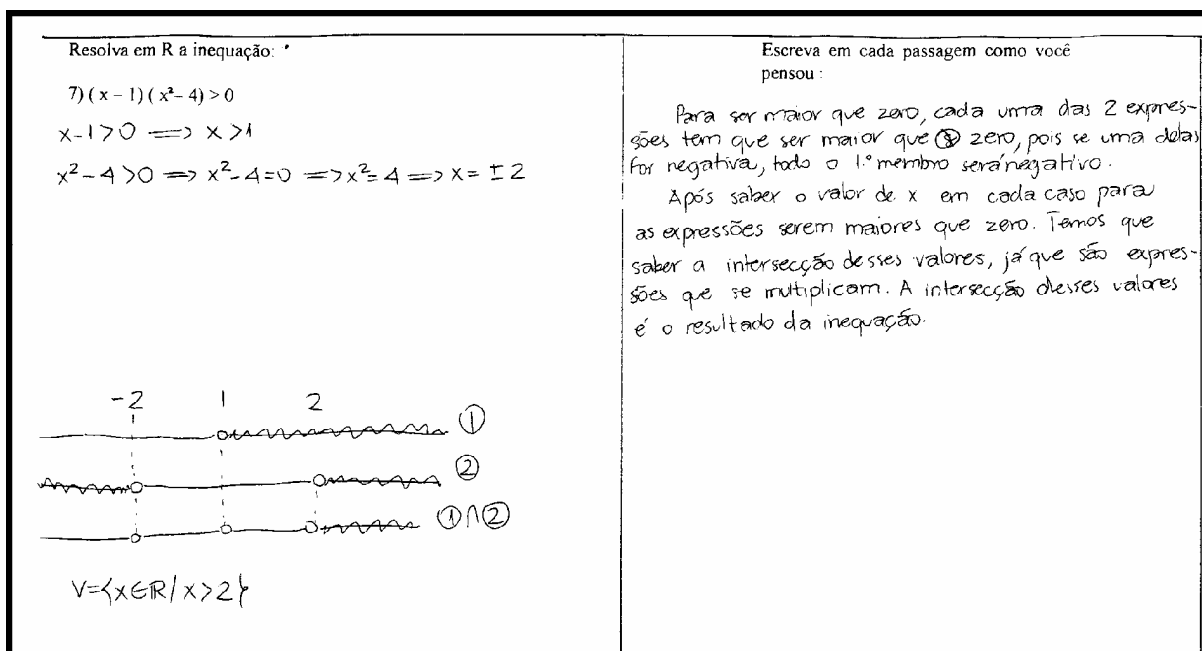 Resolva em R a inequação:
7) ( x – 1) ( x² – 4) > 0
x-1>0 => x>1
x²-4>0 => x²-4=0 => x²=4 => x= ±2
-2 1 2
①
②
①∩②
V={x∈R/x>2}
Escreva em cada passagem como você
pensou :
Para ser maior que zero, cada uma das 2 expres-
sões tem que ser maior que zero, pois se uma delas
for negativa, todo o 1.º membro será negativo.
Após saber o valor de x em cada caso para
as expressões serem maiores que zero. Temos que
saber a intersecção desses valores, já que são expres-
sões que se multiplicam. A intersecção desses valores
é o resultado da inequação.